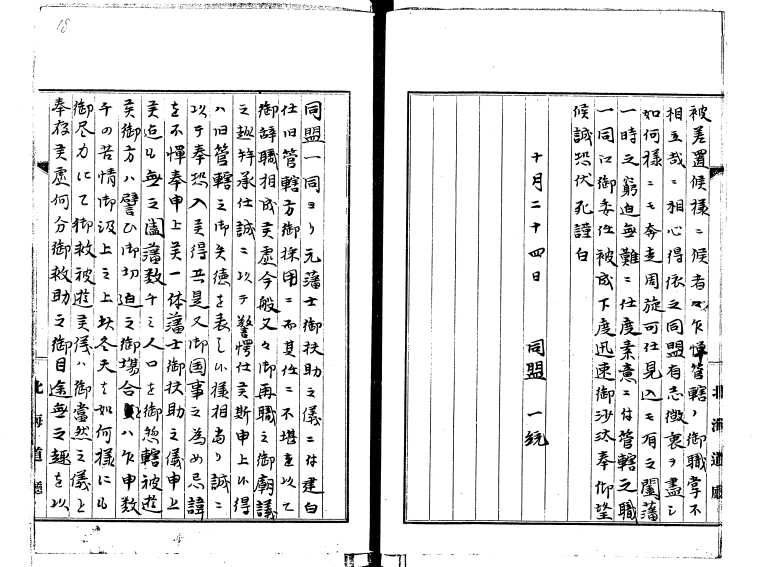 被差置候様ニ候者〻乍憚管轄ノ御職掌不
相立哉ニ相心得依之同盟有志微衷ヲ盡シ
如何様ニモ奔走周旋可仕見込モ有之闔藩
一時之窮迫無難ニ仕度素意ニ付管轄之職
一同江御委任被成下度迅速御沙汰奉仰望
候誠恐伏死謹白
十月二十四日
同盟一統
北海道廳
同盟一同ヨリ元藩士御扶助之儀ニ付建白
仕旧管轄方御採用ニ不其任ニ不堪達以て
御辞職相成候處今般又々御再職之御廟議
之趣拝承仕誠ニ以テ驚愕仕候斯申上候得
ハ旧管轄之御失徳を表し候様相当り誠ニ
以テ奉恐入候得共是又御国事之為め忌諱
を不憚奉申上候一体藩士御扶助之儀申上
候迄も無之闔藩数千之人口を御惣轄被遊
候御方ハ譬ひ御切迫之御場合ハ乍申数
千の苦情御汲上之上欤冬天を如何様にも
御尽力にて御救被遊候儀ハ御當然之儀と
奉存候處何分御救助之御目途無之趣を以
北海道廳
18